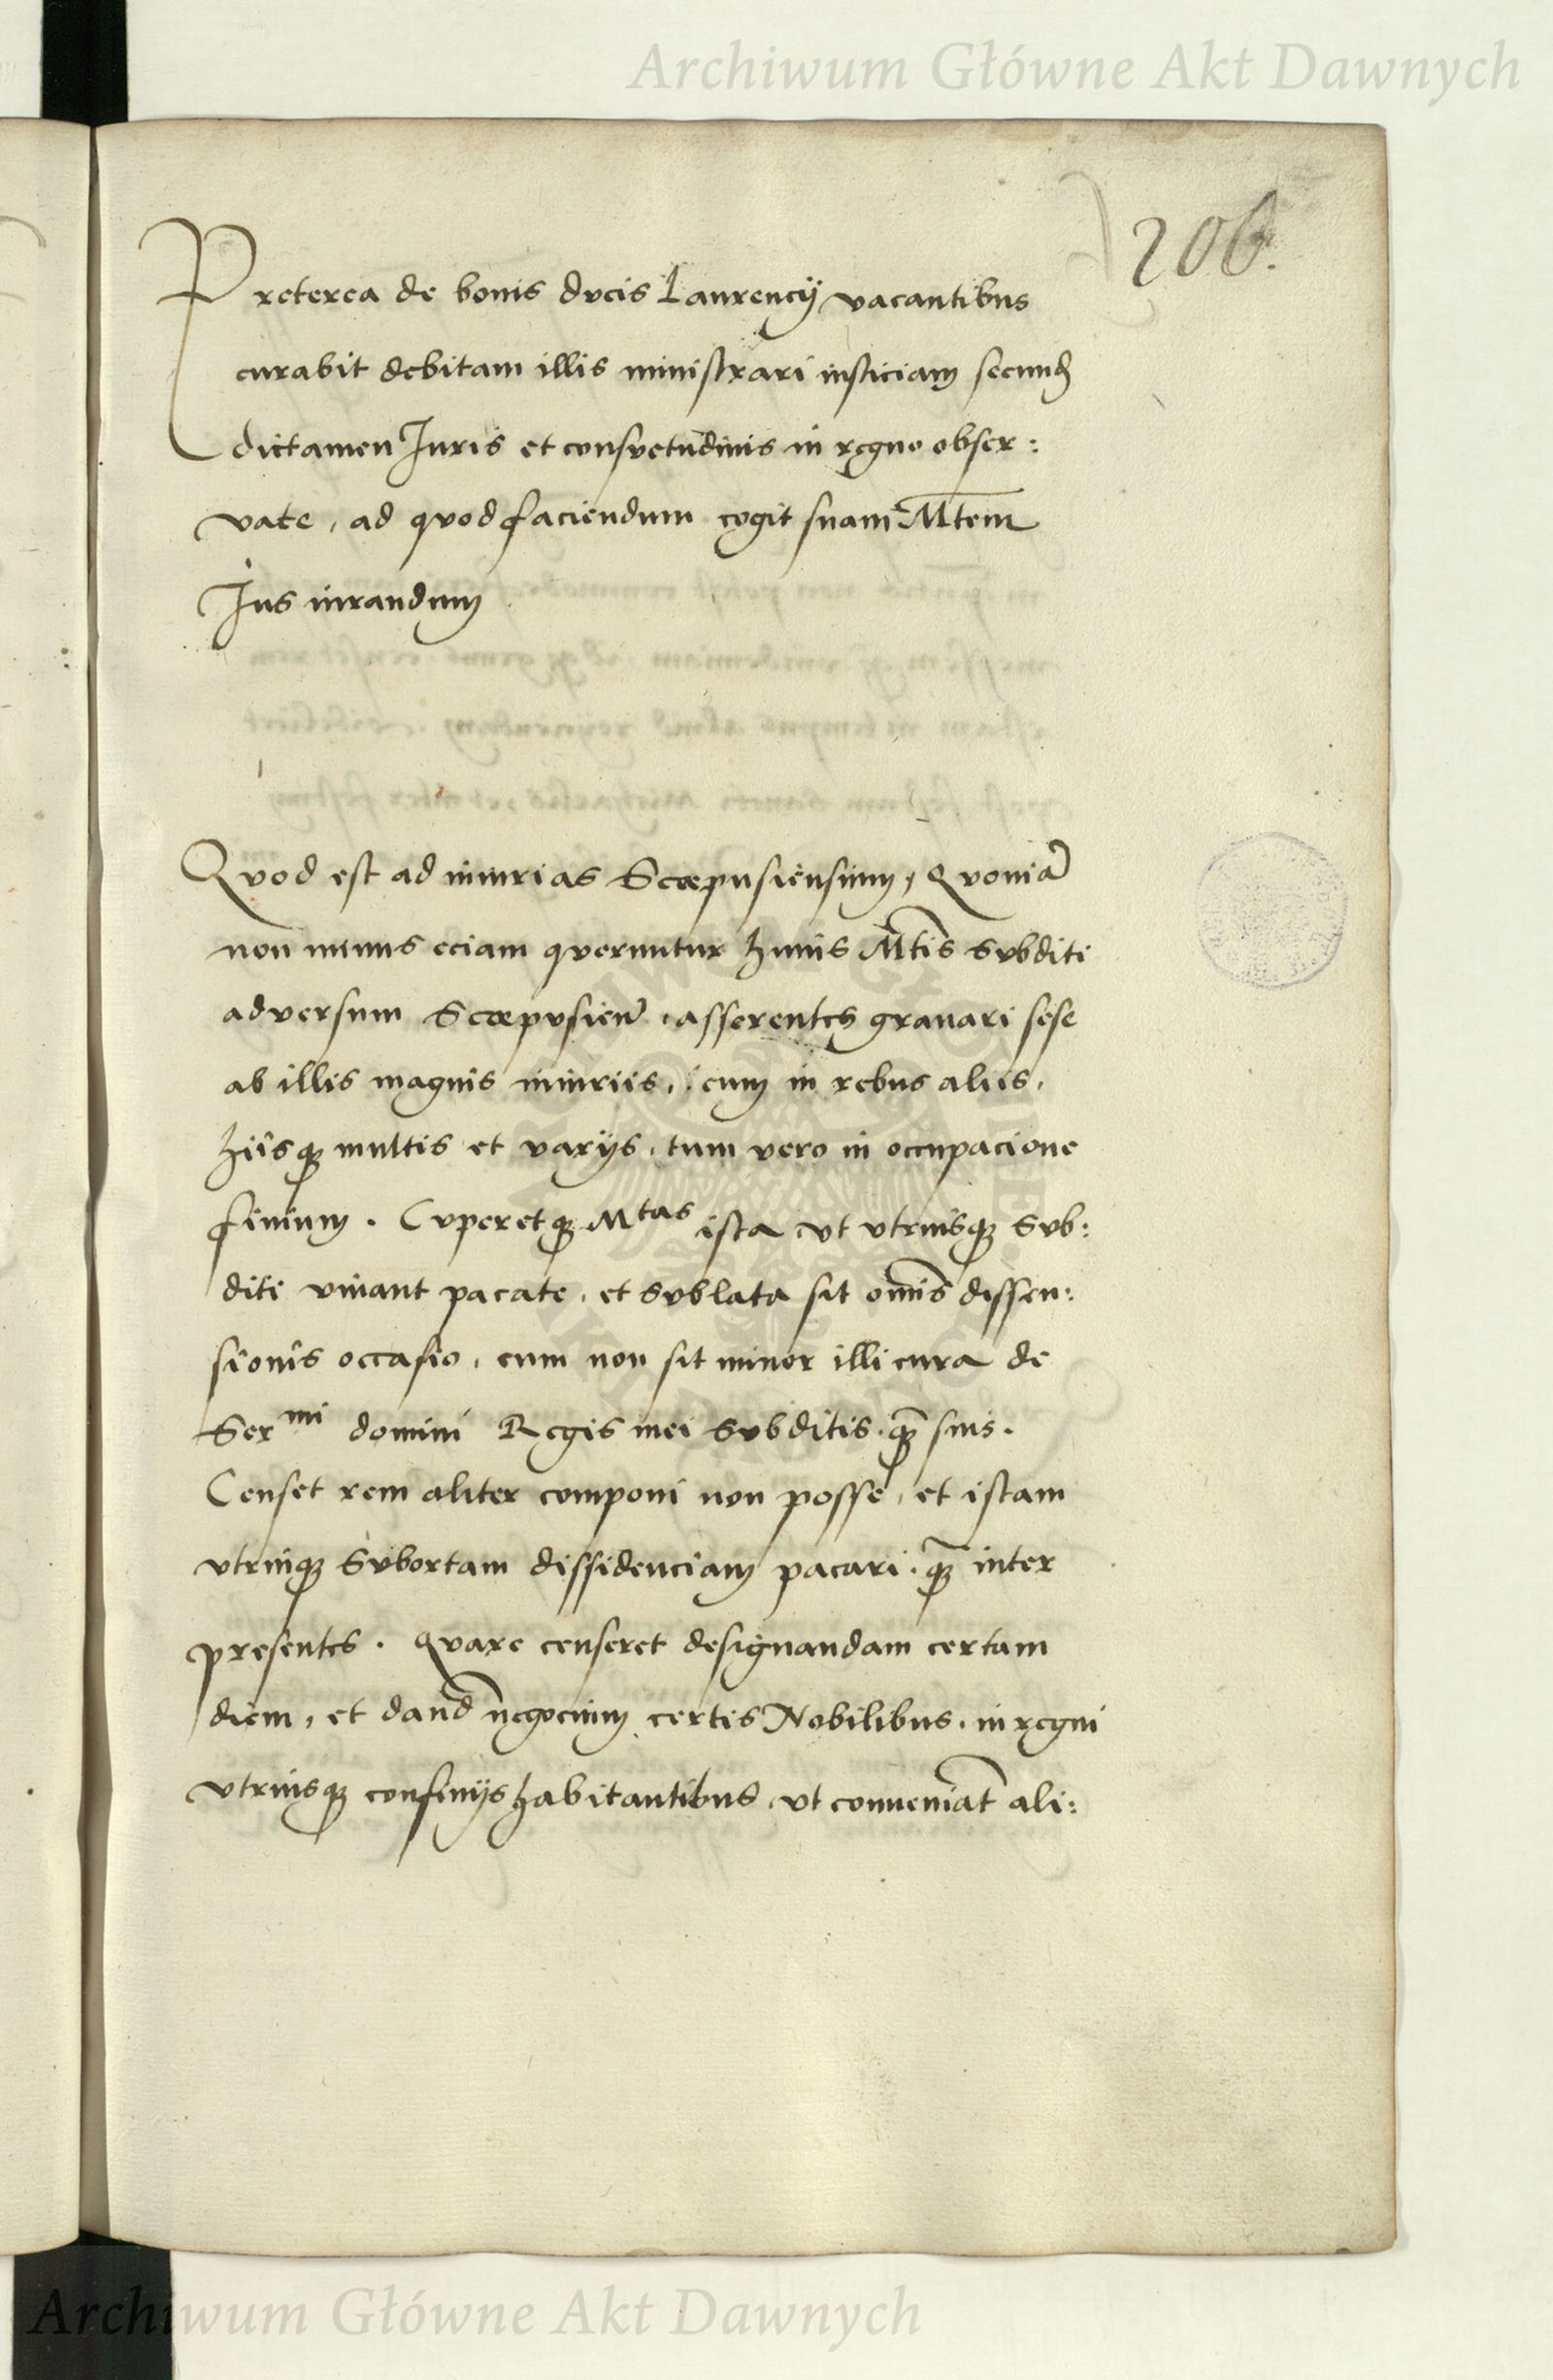 Archiwum Główne Akt Dawnych
206.
Preterea de bonis dvcis Laurencij vacantibus
curabit debitam illis ministrari insticiam secund
dictamen Juris et consvetudinis in regno obser:
vate, ad qvod faciendum cogit suam Mtem
Jus iurandum
Qvod est ad iniurias Scepusiensium, Qvoniã
non minus eciam qveruntur huius Mtis svbditi
adversum Scepvsien̄, asserentes grauari sese
ab illis magnis iniuriis, cum in rebus aliis,
hiisq; multis et varijs, tum vero in occupacione
finium. Cvperetq; Mtas ista vt vtriusq; svb:
diti viuant pacate, et svblata sit om̄is dissen:
sionis occasio, cum non sit minor illi cura de
Sermi domini Regis mei svbditis, q̃ suis.
Censet rem aliter componi non posse, et istam
vtrinq; svbortam dissidenciam pacari, q̃ inter
presentes. Qvare censeret designandam certam
diem, et dand negocium certis Nobilibus, in regni
vtriusq; confinijs habitantibus, vt conueniãt ali:
Archiwum Główne Akt Dawnych